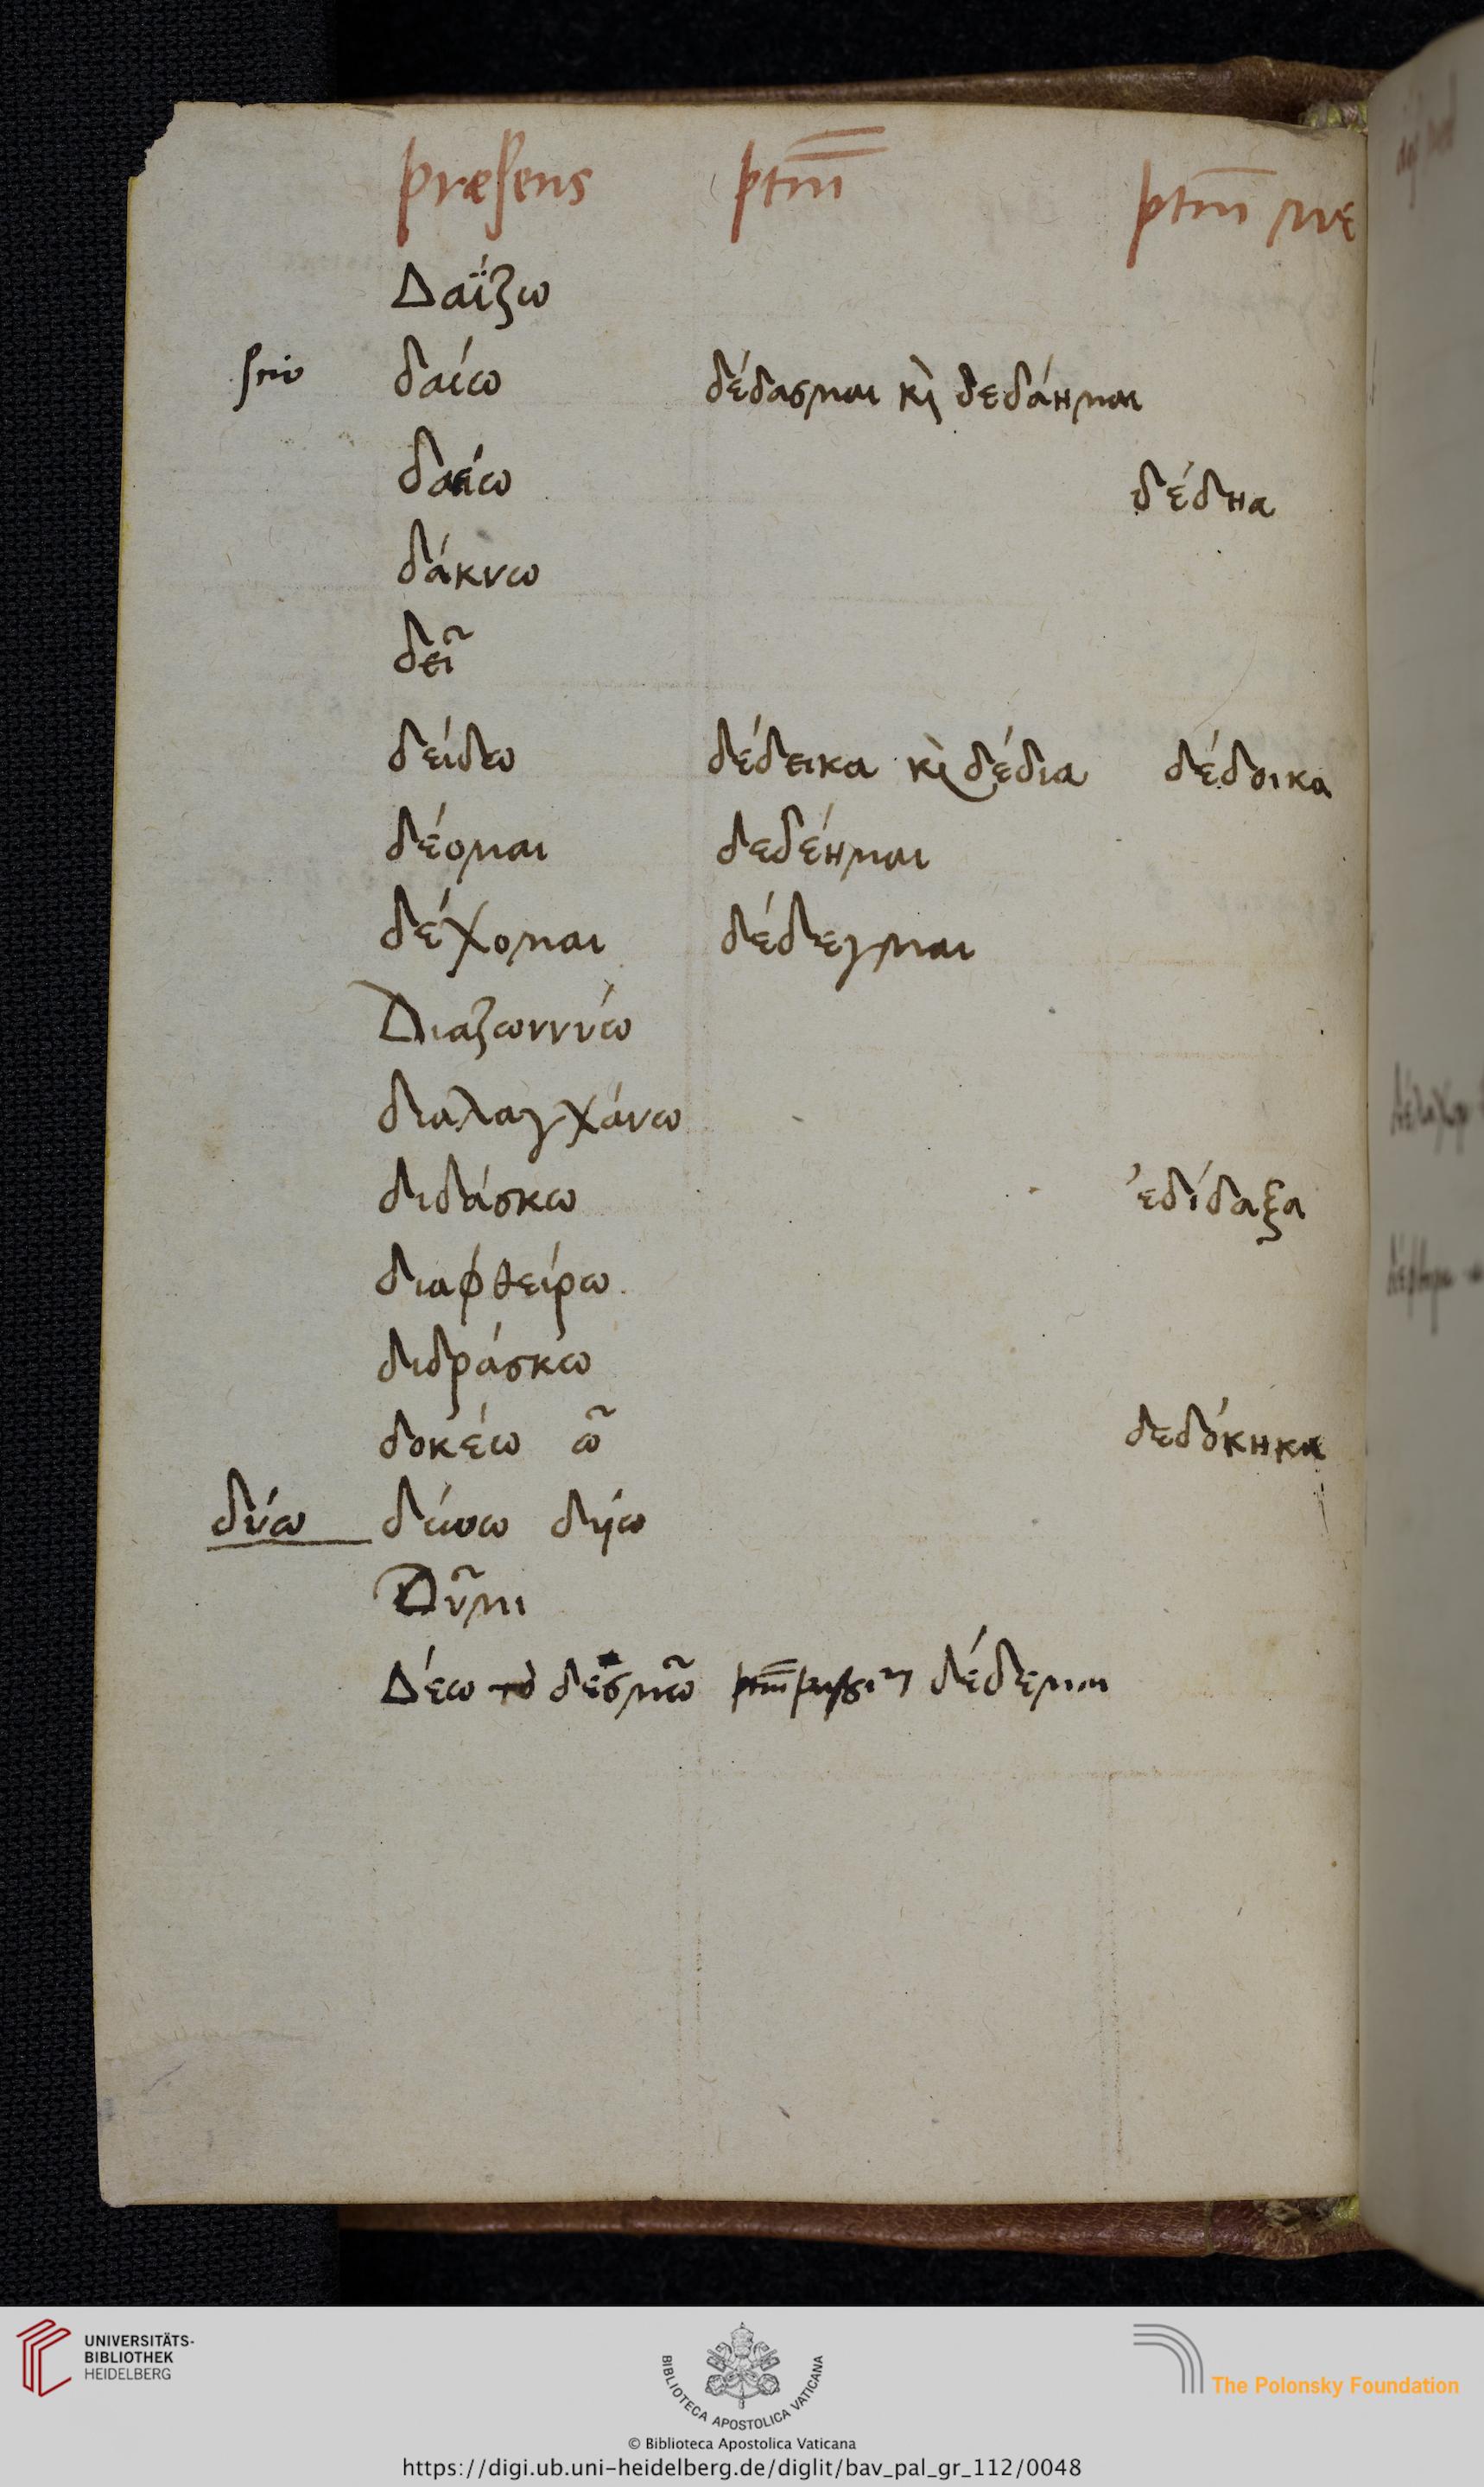 præsens ptm ptm me
Δαΐζω
scio δαίω δέδασμαι κὶ δεδάημαι
δαίω δέδηα
δάκνω
δεῖ
δείδω δέδεικα κὶ δέδια δέδοικα
δέομαι δεδέημαι
δέχομαι δέδεγμαι
Διαζωννύω
διαλαγχάνω
διδάσκω ἐδίδαξα
διαφθείρω.
διδράσκω
δοκέω ῶ δεδόκηκα
δύω
Δῦμι
Δέω τὸ δεσμῶ ptm δέδεμαι
UNIVERSITÄTS-
BIBLIOTHEK
HEIDELBERG
BIBLIOTECA APOSTOLICA VATICANA
The Polonsky Foundation
© Biblioteca Apostolica Vaticana
https://digi.ub.uni-heidelberg.de/diglit/bav_pal_gr_112/0048